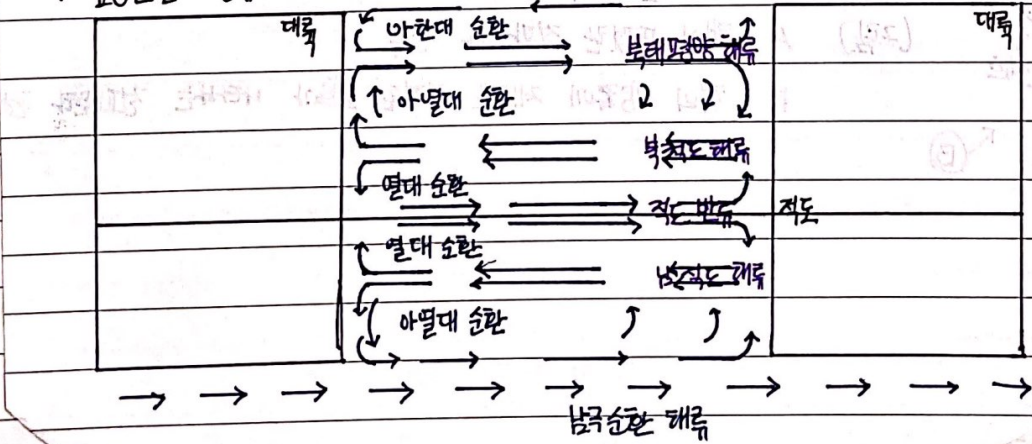 대륙
대륙
아한대 순환
북태평양 해류
아열대 순환
북적도 해류
열대 순환
적도 반류
적도
열대 순환
남적도 해류
아열대 순환
남극 순환 해류